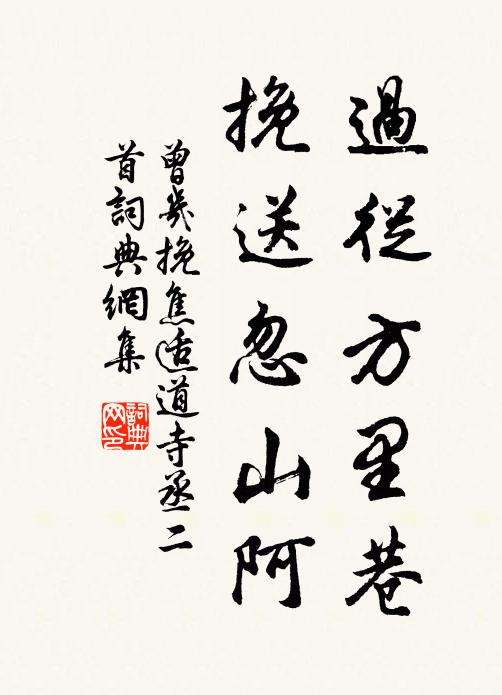 過從方里巷
挽送忽山阿
曾幾挽焦适道寺丞二
首詞典網集
詞典
网印